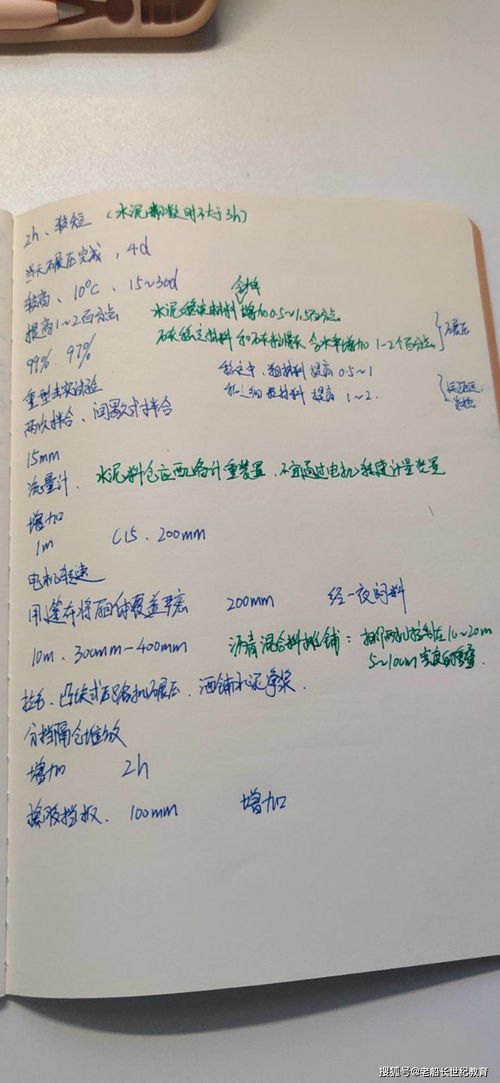 2h、较短 (水泥粉煤时不大于3h)
当天碾压完成，4d
较高、10℃、15~30d
含水率
提高1~2百分点 水泥稳定材料 增加0.5~1.5百分点
石灰稳定材料和石灰粉煤灰 含水率增加 1-2个百分点 碾压
99%. 97%
稳定中、粗材料 提高0.5~1
重型击实试验
稳定细粒材料 提高 1~2.
两次拌合、间歇式拌合
15mm
流量计. 水泥料仓应配备计重装置.不宜通过电机转速计量装置
增加
1m C15、200mm
电机转速
用篷布将厢体覆盖严密 200mm 经一夜闷料
10m、300mm-400mm 沥青混合料摊铺：相邻两机控制在10~20m
5~10cm宽度的重叠
拉毛、凸块式压路机碾压、洒铺水泥净浆.
分档隔仓堆放
增加 2h
橡胶挡板、100mm 增加
搜狐号@老船长世纪教育